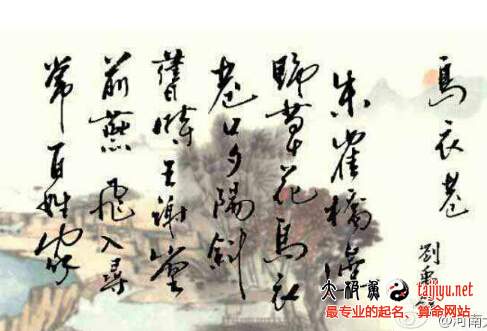 烏衣巷
劉禹
朱雀橋邊
野草花烏衣
巷口夕陽斜
舊時王謝堂
前燕飛入尋
常百姓家
taijyu.net
最专业的起名、算命网站
@河南